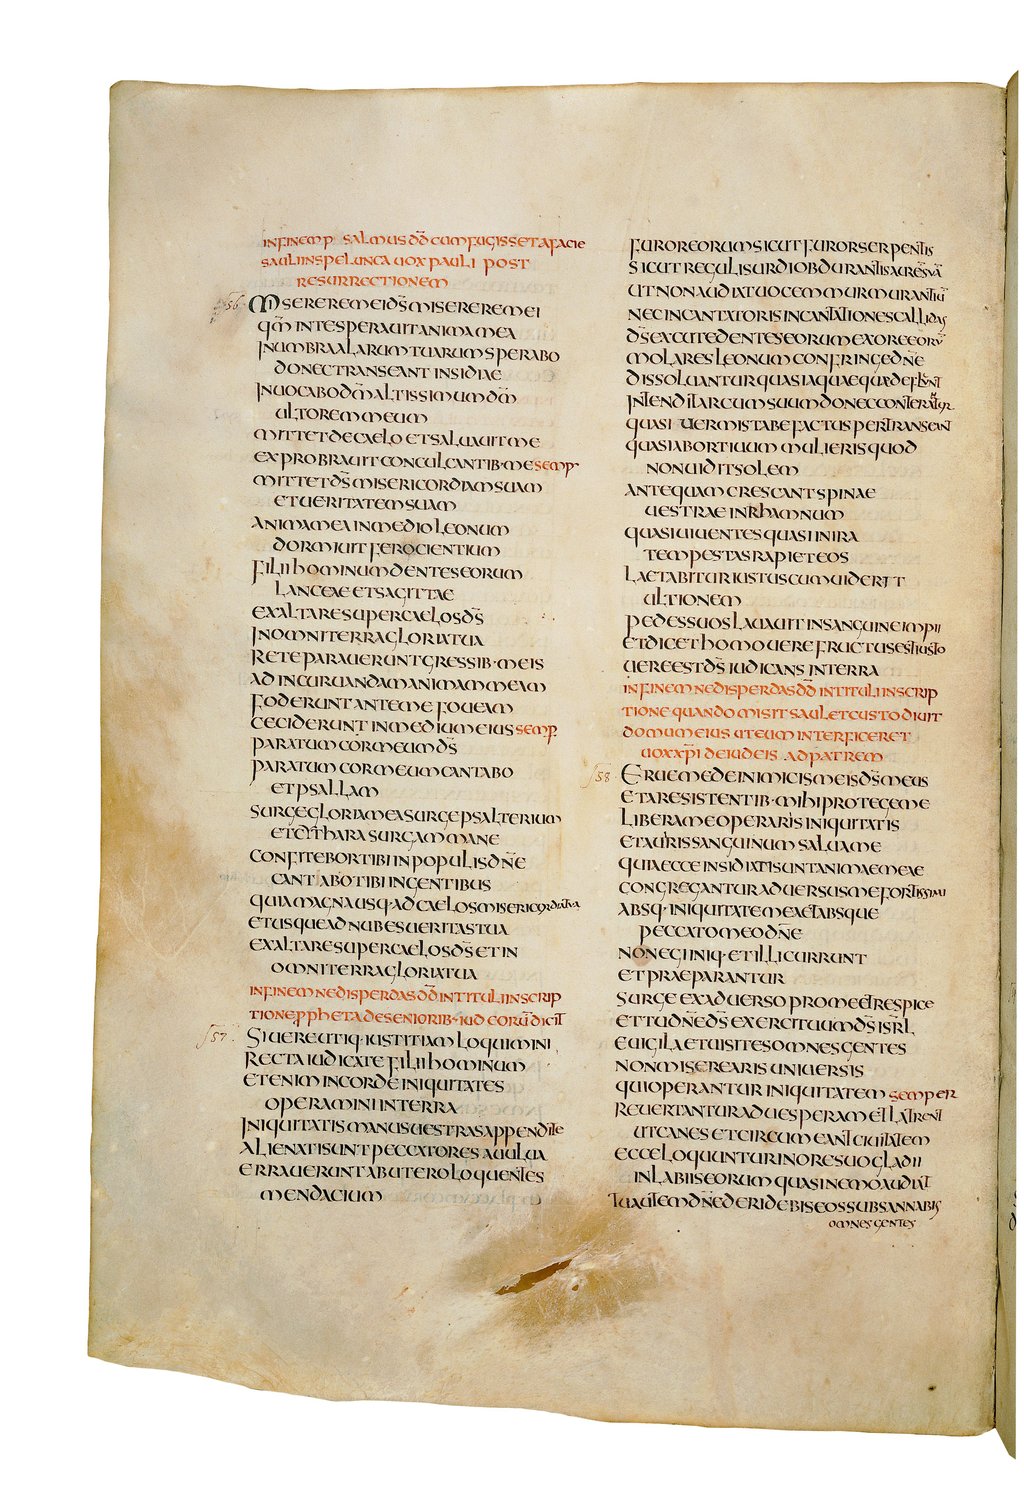 IN FINEM P SALMUS DD CUM FUGISSET A FACIE
SAULI IN SPELUNCA UOX PAULI POST
RESURRECTIONEM
56 MISERERE MEI D̄S MISERERE MEI
QM̄ IN TE SPERAUIT ANIMA MEA
IN UMBRA ALARUM TUARUM SPERABO
DONEC TRANSEANT INSIDIAE
INUOCABO DM̄ ALTISSIMUM DM̄
ULTOREM MEUM
MITTET DE CAELO ET SALUAUIT ME
EXPROBRAUIT CONCULCANTIB· ME SEMP·
MITTET D̄S MISERICORDIAM SUAM
ET UERITATEM SUAM
ANIMA MEA IN MEDIO LEONUM
DORMIUIT FEROCIENTIUM
FILII HOMINUM DENTES EORUM
LANCEAE ET SAGITTAE
EXALTARE SUPER CAELOS D̄S
IN OMNI TERRA GLORIA TUA
RETE PARAUERUNT GRESSIB· MEIS
AD INCURUANDAM ANIMAM MEAM
FODERUNT ANTE ME FOUEAM
CECIDERUNT IN MEDIUM EIUS SEMP
PARATUM COR MEUM D̄S
PARATUM COR MEUM CANTABO
ET PSALLAM
SURGE GLORIA MEA SURGE PSALTERIUM
ET CYTHARA SURGAM MANE
CONFITEBOR TIBI IN POPULIS DN̄E
CANTABO TIBI IN GENTIBUS
QUIA MAGNA USQ· AD CAELOS MISERICORDIA TUA
ET USQUE AD NUBES UERITAS TUA
EXALTARE SUPER CAELOS D̄S ET IN
OMNI TERRA GLORIA TUA
IN FINEM NE DISPERDAS DD IN TITULI INSCRIP
TIONE PPHETA DE SENIORIB· IUD CORŪ DICIT
57 SI UERE UTIQ· IUSTITIAM LOQUIMINI
RECTA IUDICATE FILII HOMINUM
ETENIM IN CORDE INIQUITATES
OPERAMINI IN TERRA
INIQUITATIS MANUS UESTRAS APPENDITE
ALIENATI SUNT PECCATORES A UULUA
ERRAUERUNT AB UTERO LOQUENTES
MENDACIUM
FUROR EORUM SICUT FUROR SERPENTIS
SICUT REGULI SURDI OBDURANTIS AURES SUĀ
UT NON AUDIAT UOCEM MURMURANTIŪ
NEC INCANTATORIS INCANTATIONES CALLIDAS
D̄S EXCUTE DENTES EORUM EX ORE EORŪ
MOLARES LEONUM CONFRINGE DN̄E
DISSOLUANTUR QUASI AQUAE QUAE DEFLUENT
INTENDIT ARCUM SUUM DONEC CONTERATUR
QUASI UERMIS TABEFACTUS PERTRANSEANT
QUASI ABORTIUUM MULIERIS QUOD
NON UIDIT SOLEM
ANTEQUAM CRESCANT SPINAE
UESTRAE IN RHAMNUM
QUASI UIUENTES QUASI IN IRA
TEMPESTAS RAPIET EOS
LAETABITUR IUSTUS CUM UIDERIT
ULTIONEM
PEDES SUOS LAUAUIT IN SANGUINE IMPII
ET DICET HOMO UERE FRUCTUS EST IUSTO
UERE EST D̄S IUDICANS IN TERRA
IN FINEM NE DISPERDAS DD IN TITULI INSCRIP
TIONE QUANDO MISIT SAUL ET CUSTODIUIT
DOMUM EIUS UT EUM INTERFICERET
UOX XPI DE IUDEIS AD PATREM
58 ERUE ME DE INIMICIS MEIS D̄S MEUS
ET A RESISTENTIB· MIHI PROTEGE ME
LIBERA ME OPERARIIS INIQUITATIS
ET A UIRIS SANGUINUM SALUA ME
QUIA ECCE INSIDIATI SUNT ANIMAE MEAE
CONGREGANTUR ADUERSUS ME FORTISSIMI
ABSQ· INIQUITATE MEA ET ABSQUE
PECCATO MEO DN̄E
NON EGI INIQ· ET ILLI CURRUNT
ET PRAEPARANTUR
SURGE EX ADUERSO PRO ME ET RESPICE
ET TU DN̄E D̄S EXERCITUUM D̄S ISRL̄
EUIGILA ET UISITES OMNES GENTES
NON MISEREARIS UNIUERSIS
QUI OPERANTUR INIQUITATEM SEMPER
REUERTANTUR AD UESPERAM ET LATRENT
UT CANES ET CIRCUMEANT CIUITATEM
ECCE LOQUUNTUR IN ORE SUO GLADII
IN LABIIS EORUM QUASI NEMO AUDIAT
TU AUTEM DN̄E DERIDEBIS EOS SUBSANNABIS
OMNES GENTES